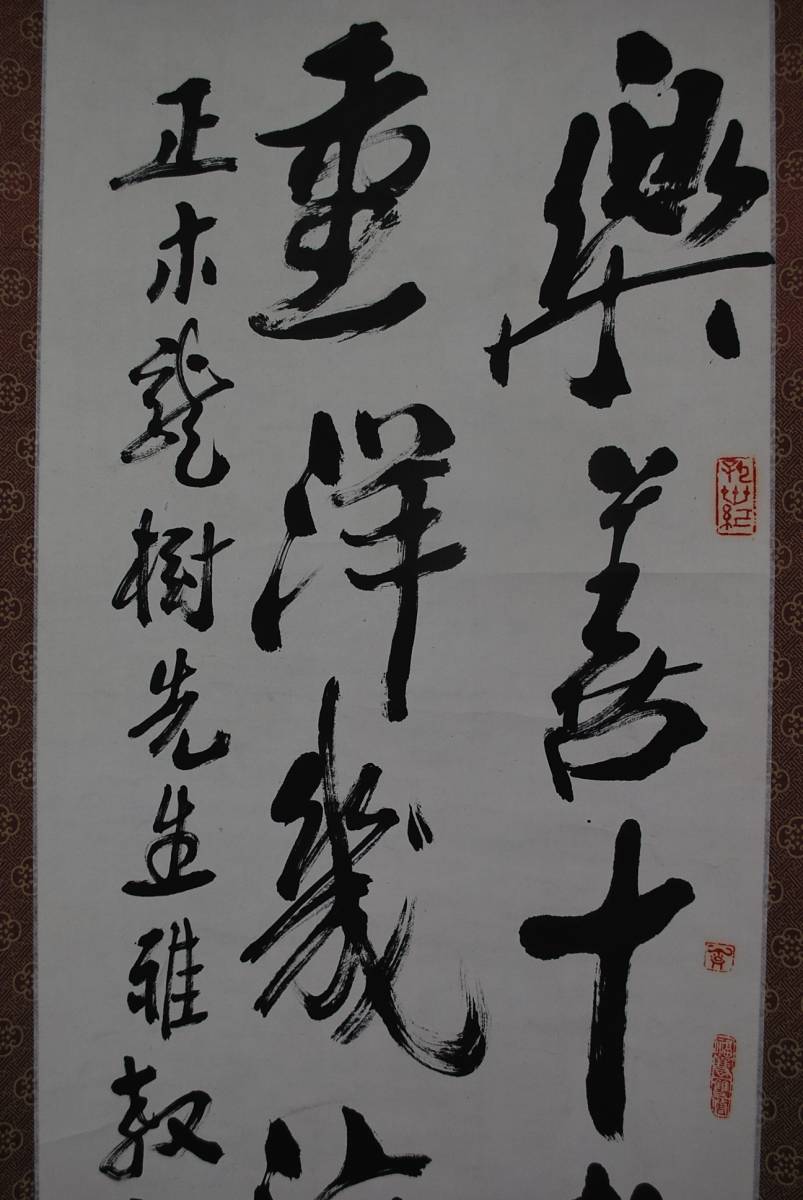 樂善十
重洋幾
正木龍樹先生雅教